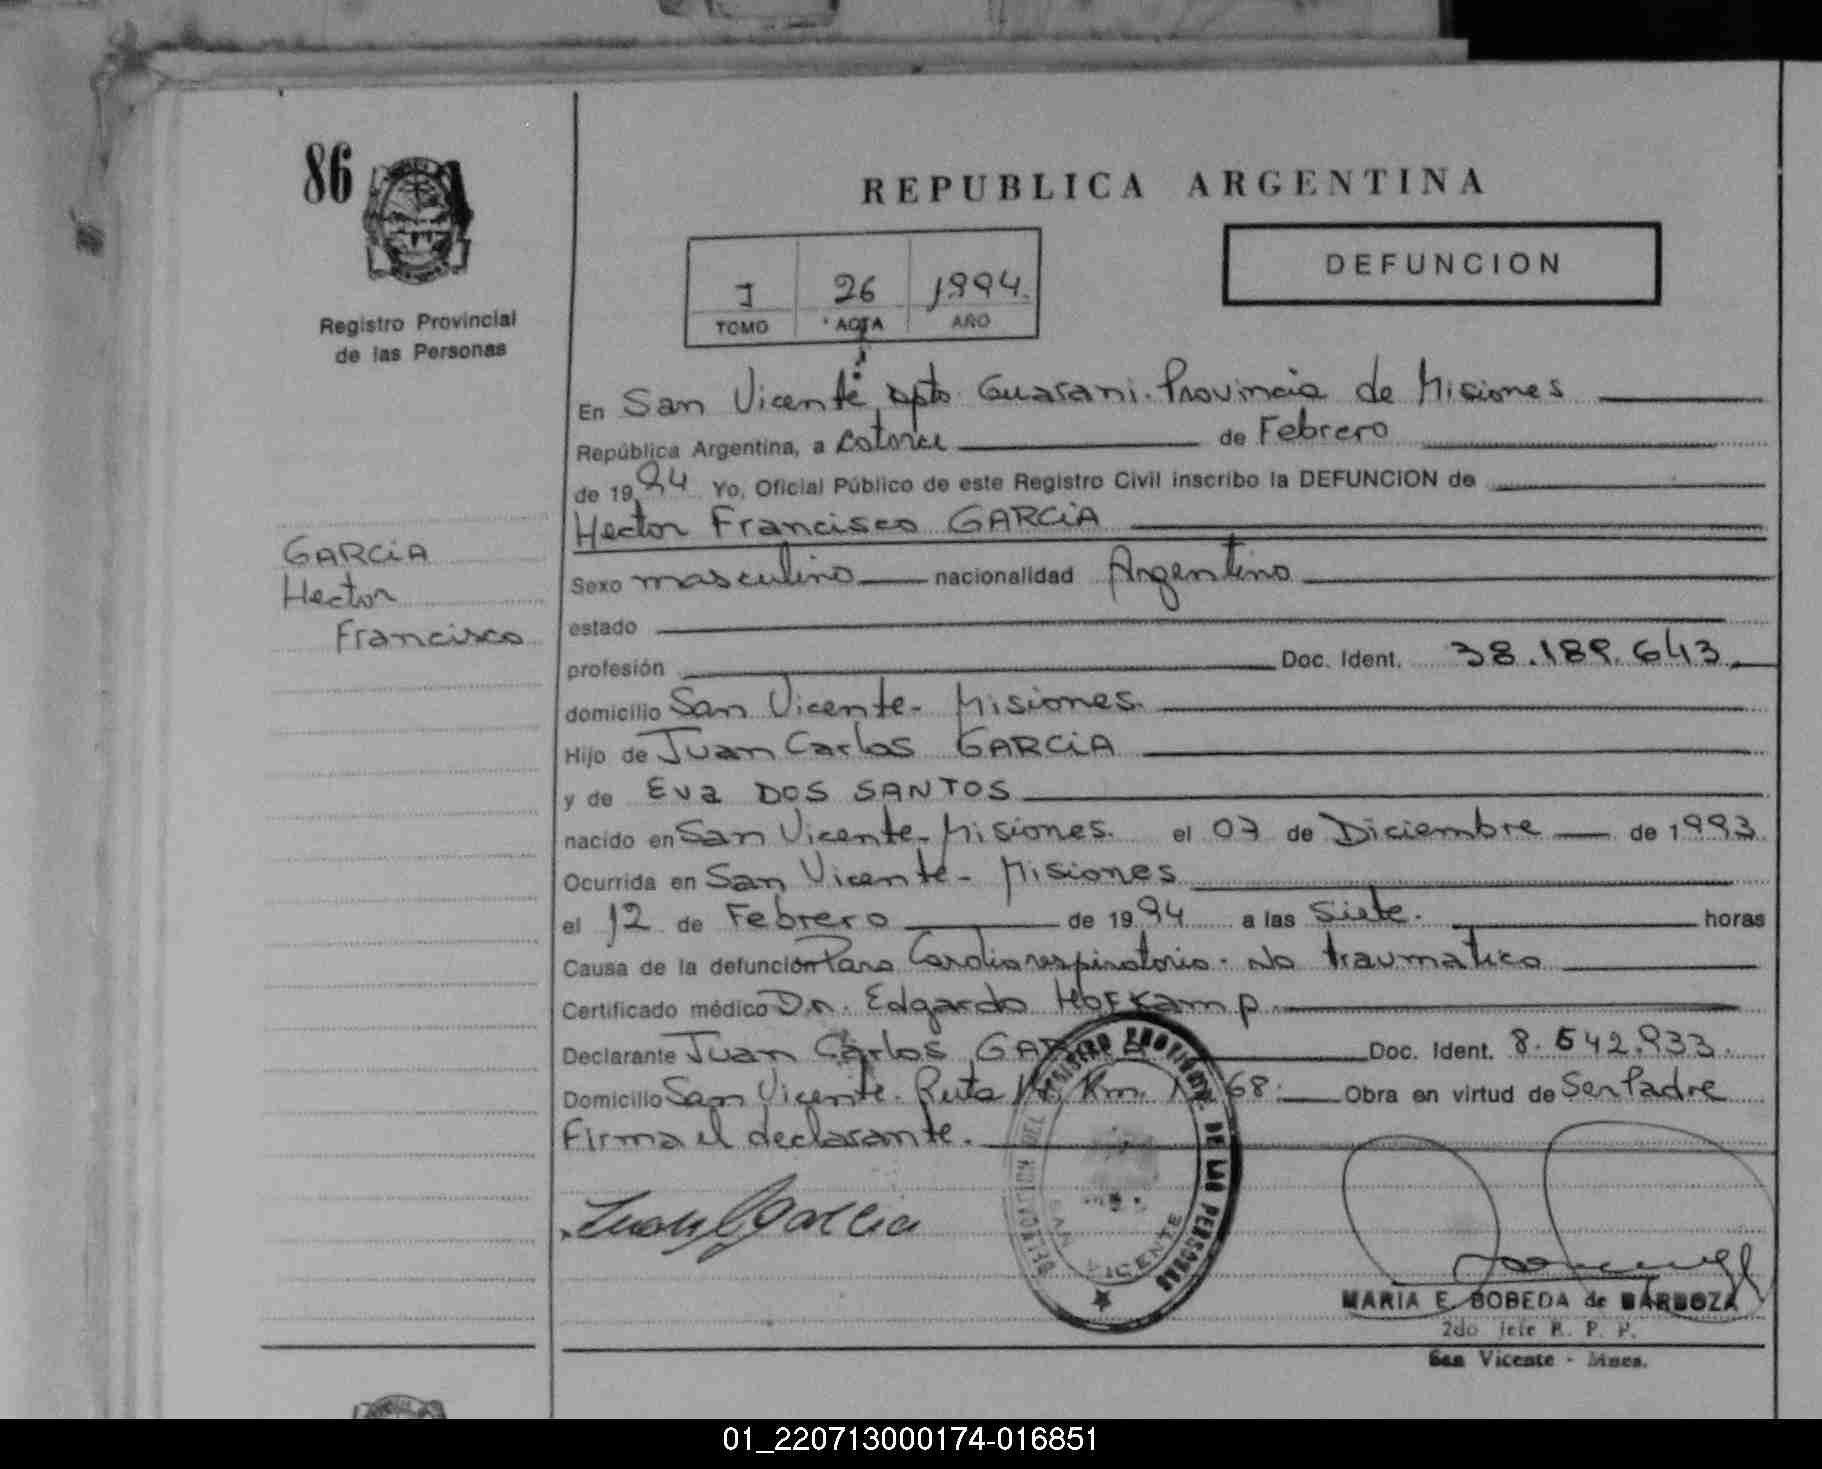 86
REPUBLICA ARGENTINA
DEFUNCION
I 26 1994.
TOMO ACTA AÑO
Registro Provincial
de las Personas
En San Vicente Dpto. Guarani. Provincia de Misiones
República Argentina, a catorce de Febrero
de 1994 Yo, Oficial Público de este Registro Civil inscribo la DEFUNCION de
Hector Francisco GARCiA
GARCiA
Hector
Francisco
Sexo masculino nacionalidad Argentino
estado
profesión Doc. Ident. 38.189.643
domicilio San Vicente - Misiones.
Hijo de Juan Carlos GARCiA
y de Eva DOS SANTOS
nacido en San Vicente - Misiones. el 07 de Diciembre de 1993
Ocurrida en San Vicente - Misiones
el 12 de Febrero de 1994 a las Siete. horas
Causa de la defunción Paro Cardiorespiratorio - No traumatico
Certificado médico Dr. Edgardo Hofkamp
Declarante Juan Carlos GARCiA Doc. Ident. 8.542.933.
Domicilio San Vicente. Ruta 14 Km. 68 Obra en virtud de Ser Padre
Firma el declarante.
Juan C Garcia
DELEGACION DEL REGISTRO PROVINCIAL DE LAS PERSONAS
SAN VICENTE
MARIA E. BOBEDA de BARBOZA
2do Jefe R. P. P.
San Vicente - Mnes.
01_220713000174-016851